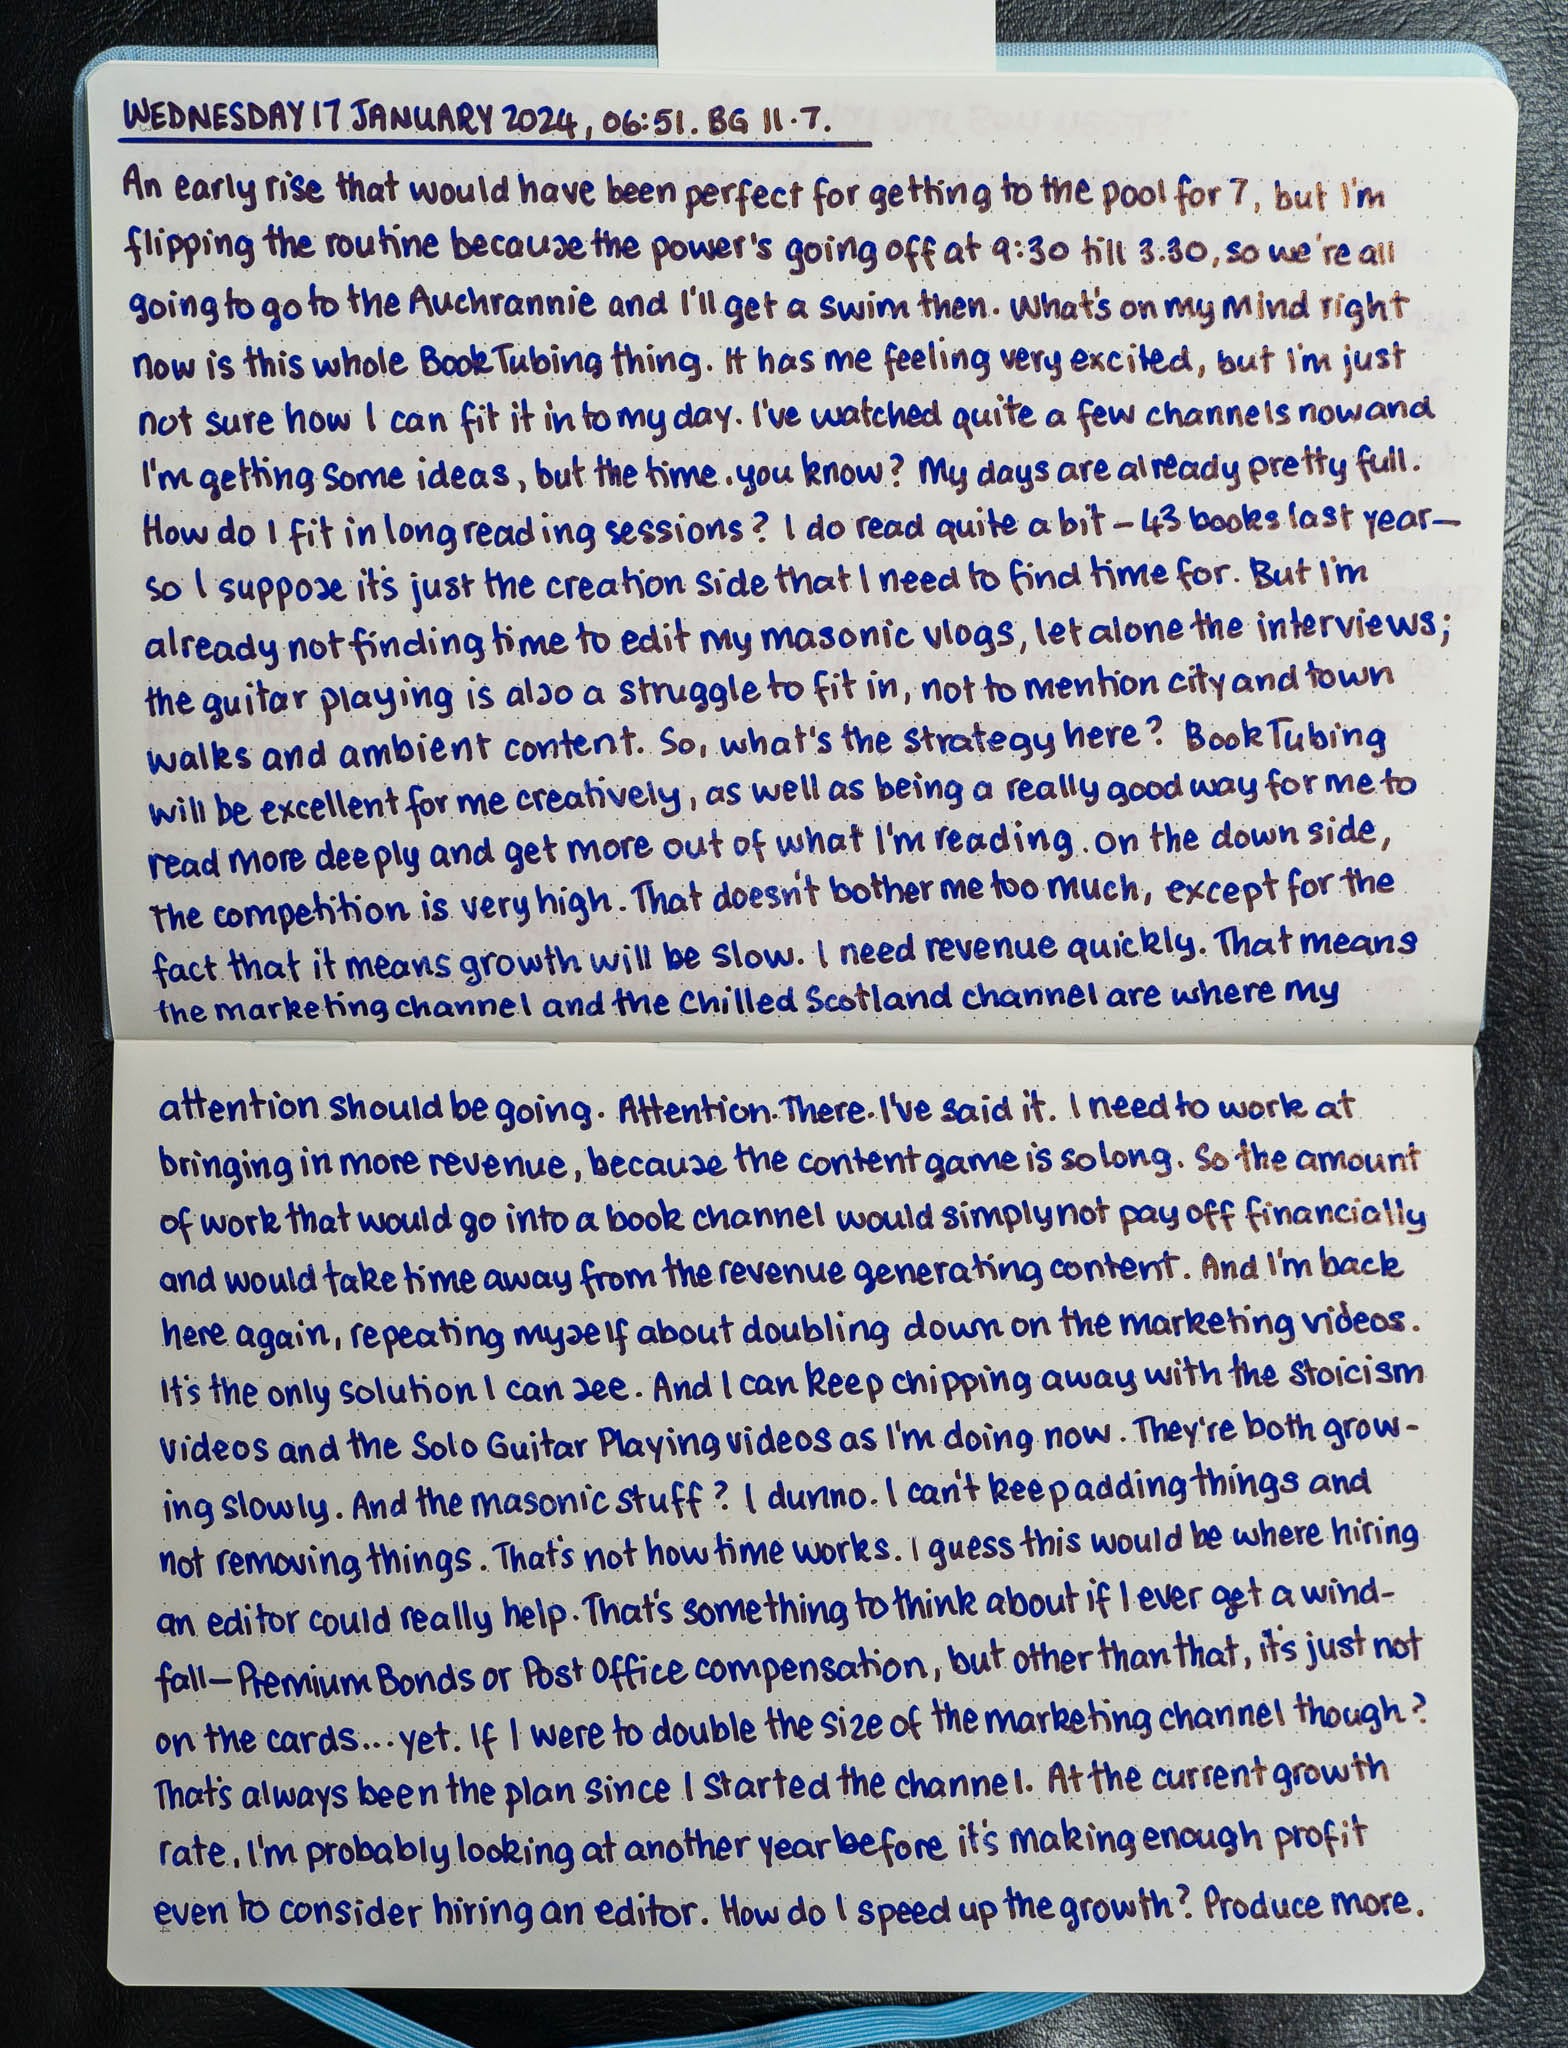 WEDNESDAY 17 JANUARY 2024, 06:51. BG 11.7.
An early rise that would have been perfect for getting to the pool for 7, but I'm
flipping the routine because the power's going off at 9:30 till 3.30, so we're all
going to go to the Auchrannie and I'll get a swim then. What's on my mind right
now is this whole BookTubing thing. It has me feeling very excited, but I'm just
not sure how I can fit it in to my day. I've watched quite a few channels now and
I'm getting some ideas, but the time, you know? My days are already pretty full.
How do I fit in long reading sessions? I do read quite a bit – 43 books last year –
so I suppose it's just the creation side that I need to find time for. But I'm
already not finding time to edit my masonic vlogs, let alone the interviews;
the guitar playing is also a struggle to fit in, not to mention city and town
walks and ambient content. So, what's the strategy here? BookTubing
will be excellent for me creatively, as well as being a really good way for me to
read more deeply and get more out of what I'm reading. On the down side,
the competition is very high. That doesn't bother me too much, except for the
fact that it means growth will be slow. I need revenue quickly. That means
the marketing channel and the Chilled Scotland channel are where my
attention should be going. Attention. There. I've said it. I need to work at
bringing in more revenue, because the content game is so long. So the amount
of work that would go into a book channel would simply not pay off financially
and would take time away from the revenue generating content. And I'm back
here again, repeating myself about doubling down on the marketing videos.
It's the only solution I can see. And I can keep chipping away with the Stoicism
videos and the Solo Guitar Playing videos as I'm doing now. They're both grow-
ing slowly. And the masonic stuff? I dunno. I can't keep adding things and
not removing things. That's not how time works. I guess this would be where hiring
an editor could really help. That's something to think about if I ever get a wind-
fall – Premium Bonds or Post Office compensation, but other than that, it's just not
on the cards... yet. If I were to double the size of the marketing channel though?
That's always been the plan since I started the channel. At the current growth
rate, I'm probably looking at another year before it's making enough profit
even to consider hiring an editor. How do I speed up the growth? Produce more.